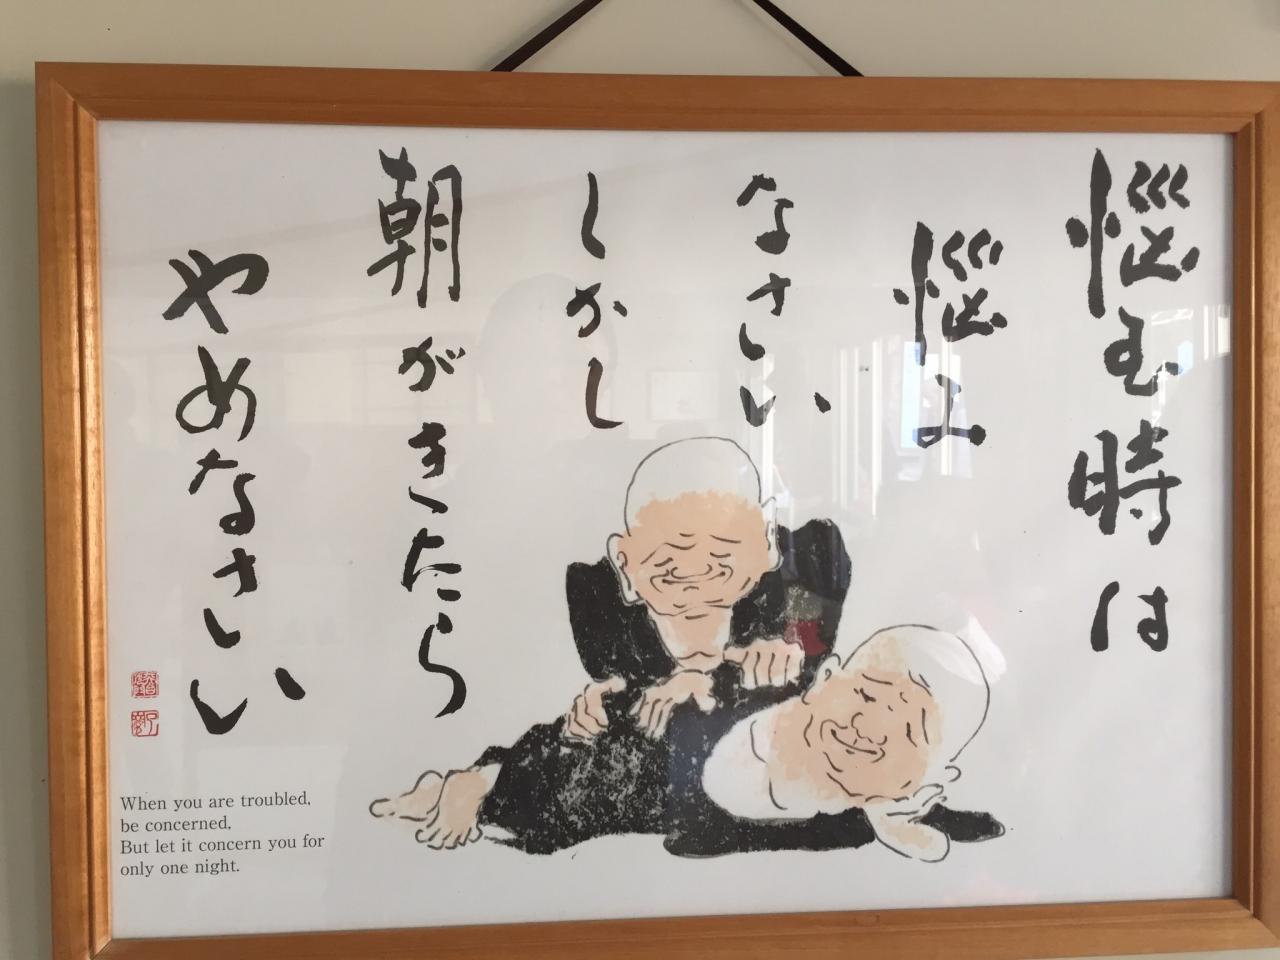 悩む時は
悩み
なさい
しかし
朝がきたら
やめなさい
When you are troubled,
be concerned,
But let it concern you for
only one night.